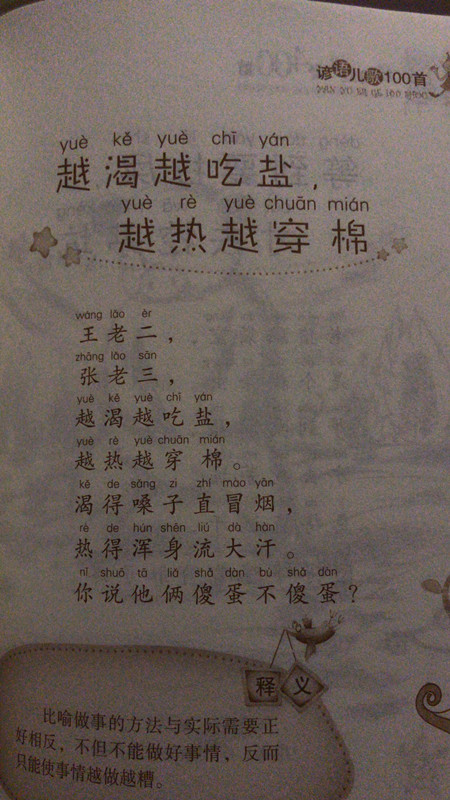 谚语儿歌100首
yuè kě yuè chī yán
越渴越吃盐，
yuè rè yuè chuān mián
越热越穿棉
wáng lǎo èr
王老二，
zhāng lǎo sān
张老三，
yuè kě yuè chī yán
越渴越吃盐，
yuè rè yuè chuān mián
越热越穿棉。
kě de sǎng zi zhí mào yān
渴得嗓子直冒烟，
rè de hún shēn liú dà hàn
热得浑身流大汗。
nǐ shuō tā liǎ shǎ dàn bù shǎ dàn
你说他俩傻蛋不傻蛋？
释义
比喻做事的方法与实际需要正
好相反，不但不能做好事情，反而
只能使事情越做越糟。